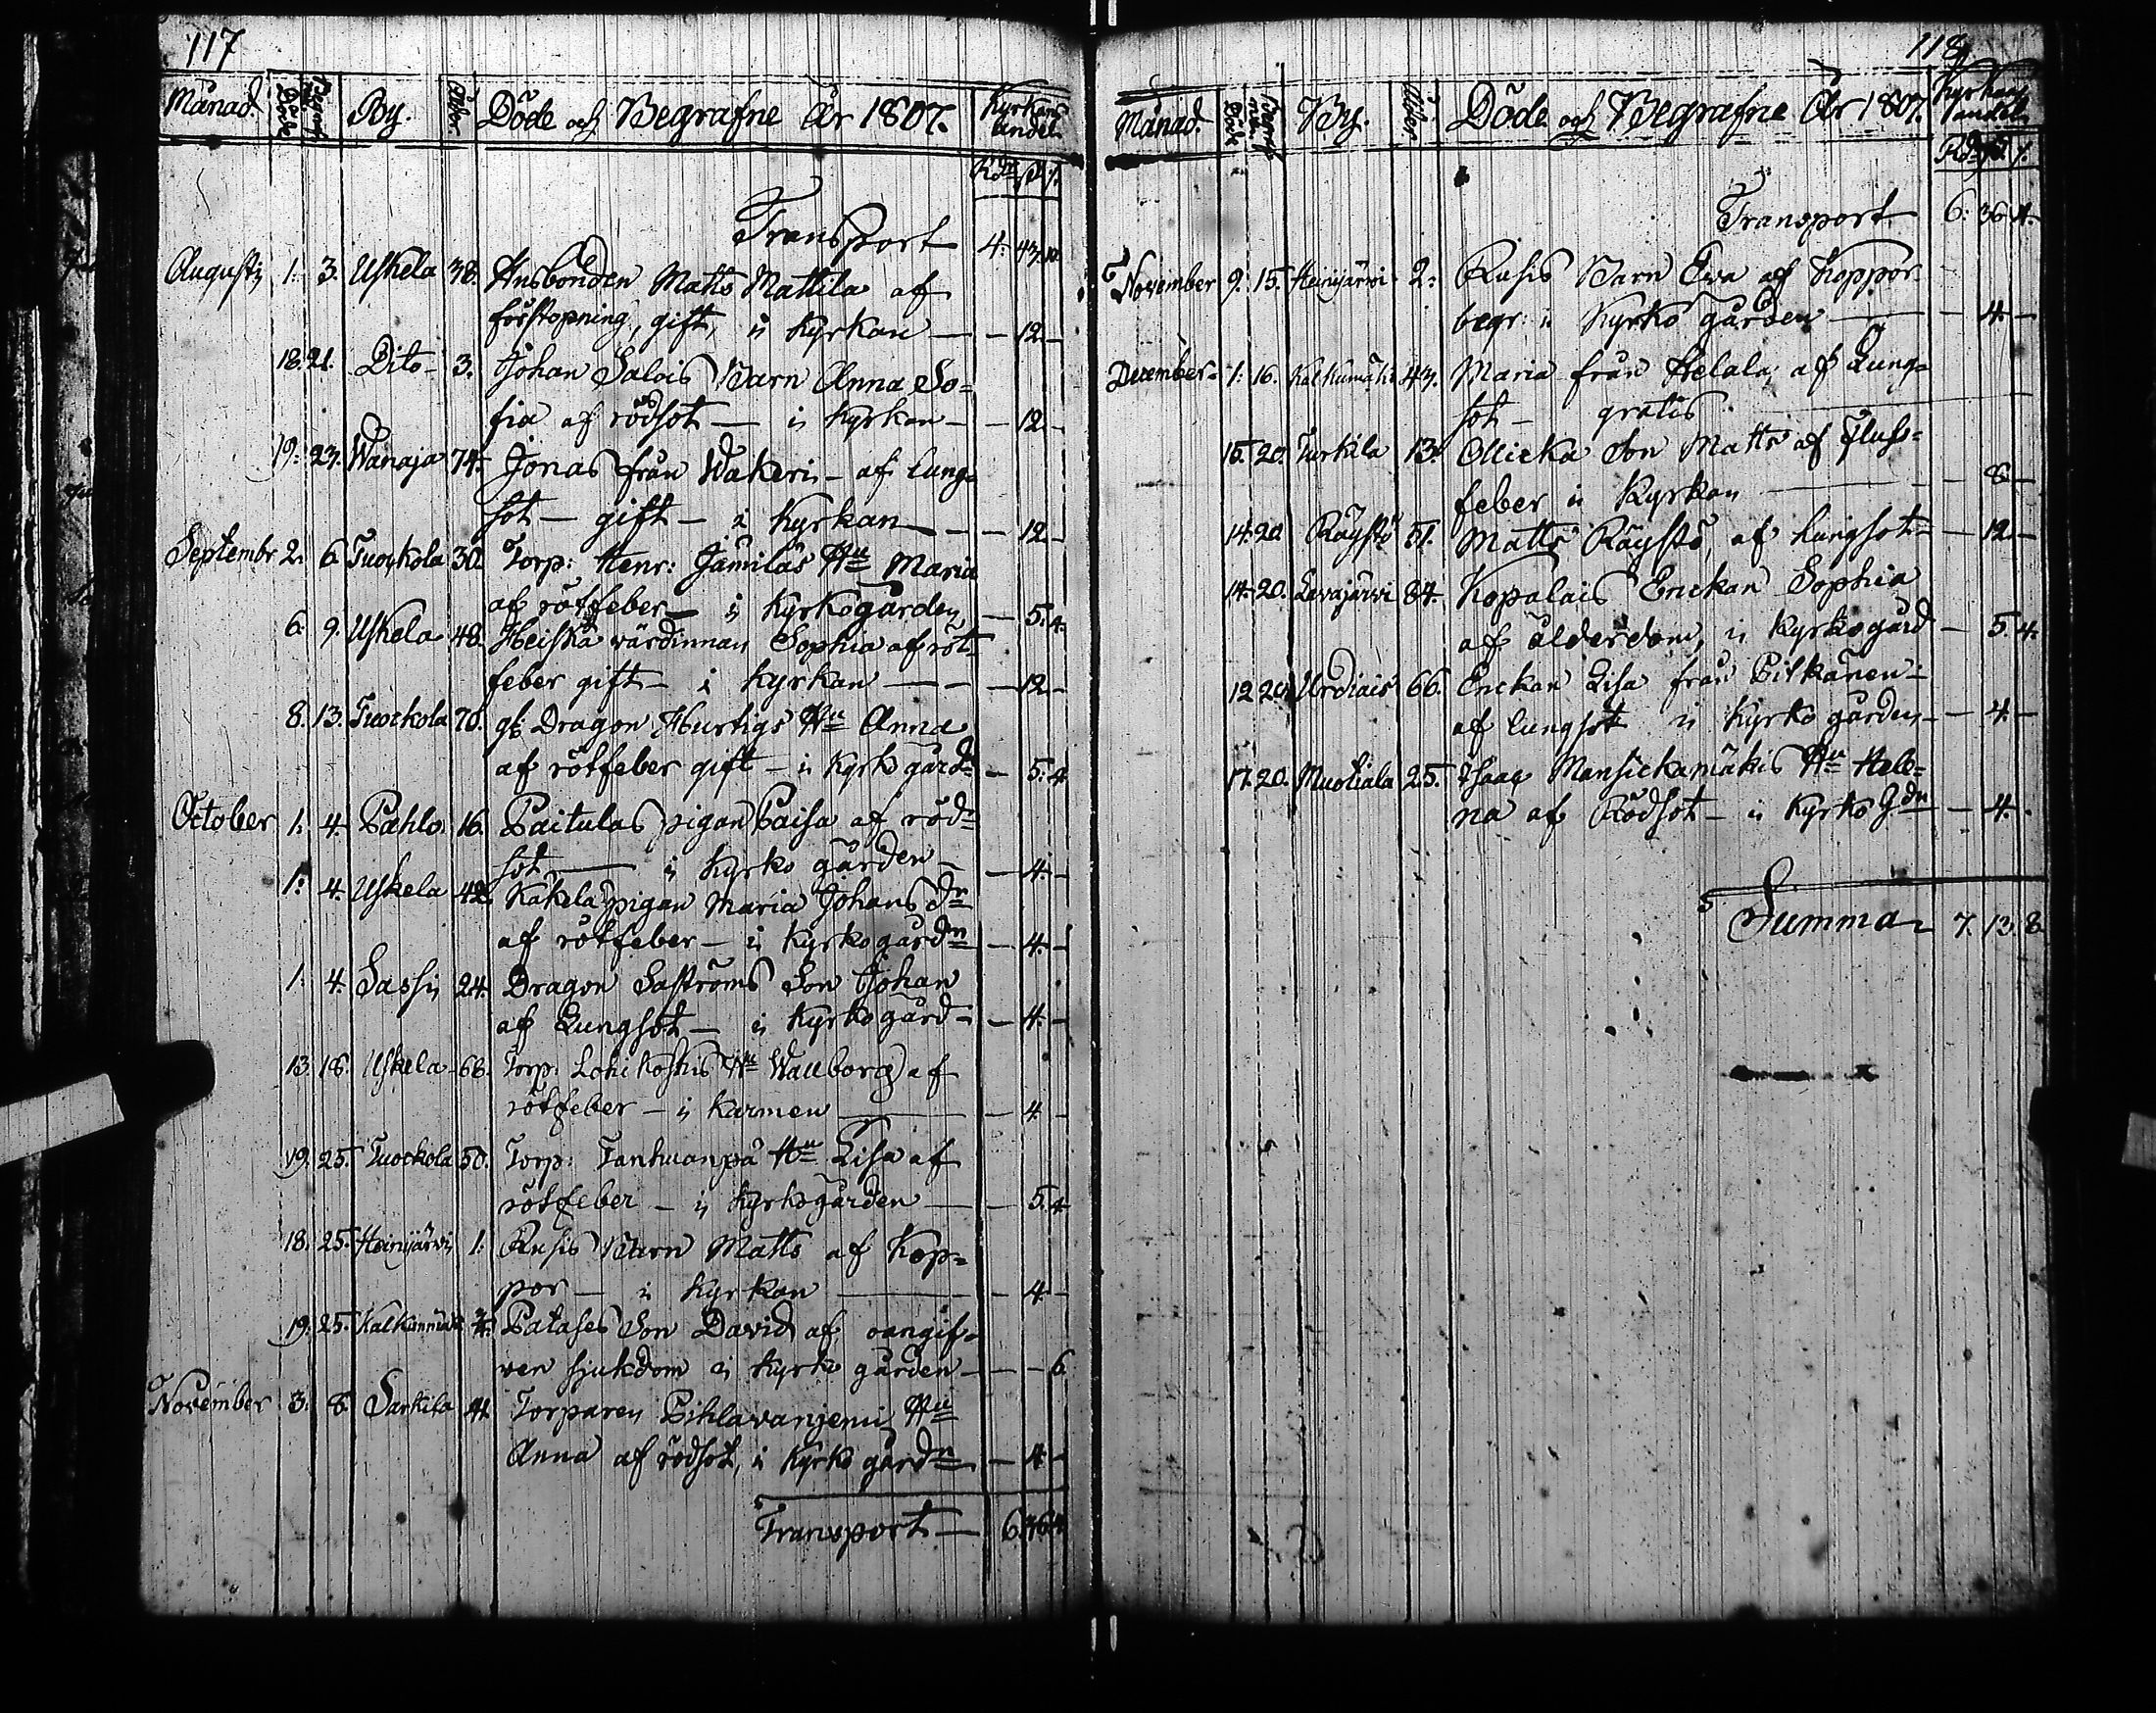 117
Månad. Döde Begrafne By. Ålder Döde och Begrafne År 1807. Kyrkans andel.
Rdr ß /.
Transport 4. 43. 10.
Augusti 1. 3. Uskela 38. Husbonden Matts Mattila af
förstopning, gift, i Kyrkan — — 12 —
18. 21. Dito — 3. Johan Salois Barn Anna So=
fia af rödsot — i Kyrkan — — 12 —
19. 23. Wanaja 74. Jonas från Wakeri — af lung=
sot — gift — i Kyrkan — — 12 —
Septembr 2. 6. Tuorkola 30. Torp: Henr: Jämiläs Hu Maria
af rötfeber — i Kyrkogården — 5. 4.
6. 9. Uskela 48. Heiskä värdinnan Sophia af röt=
feber gift — i Kyrkan — — 12 —
8. 13. Tuorkola 70. gl: Dragon Hurtigs Hu Anna
af rötfeber gift — i Kyrkogårdn — 5. 4
October 1. 4. Pahlo 16. Paitulas pigan Caisa af röd=
sot — i Kyrko gården — — 4. —
1. 4. Uskela 42. Käkelä pigan Maria Johans dr
af rötfeber — i Kyrkogårdn — 4. —
1. 4. Sassi 24. Dragon Saströms Son Johan
af Lungsot — i Kyrkogård — — 4. —
13. 18. Uskela 68. Torp: Lohikoskis Hu Wallborg af
rötfeber — i Karmen — — 4. —
19. 25. Tuorkola 50. Torp: Tanhuanpä Hu Lisa af
rötfeber — i Kyrkogården — — 5. 4
18. 25. Heinijärvi 1. Rusis Barn Matts af Kop=
por — i Kyrkan — — 4 —
19. 25. Kalkunmäki Patases Son David af oangif=
ven sjukdom i Kyrko gården — — — 6.
November 3. 8. Sarkila 41. Torparen Pihlavanjemi Hu
Anna af rödsot, i Kyrko gårdn — 4. —
Transport — 6.
118
Månad. Döde Begrafne By. Ålder Döde och Begrafne År 1807. Kyrkans andel.
Rdr ß /.
Transport 6. 36. 4.
November 9. 15. Heinijärvi 2. Rusis Barn Eva af Koppor
begr: i Kyrko gården — — 4. —
December 1. 16. Kalkumäki 43. Maria från Helala, af Lung=
sot — gratis.
15. 20. Turkila 13. Ollicka Son Matts af Fluss=
feber i Kyrkan — — 8 —
14. 20 Räystö 51. Matts Räystö, af lungsot — — 12 —
14. 20. Levajärvi 84. Kopalais Enckan Sophia
af ålderdom, i Kyrkogård — 5. 4.
12 20. Urdiais 66. Enckan Lisa från Pitkänen —
af lungsot i Kyrko gården — — 4. —
17. 20. Muotiala 25. Isaac Mansickamäkis Hu Hele=
na af Rödsot — i Kyrko Gdn — 4. .
Summa 7. 13. 8.